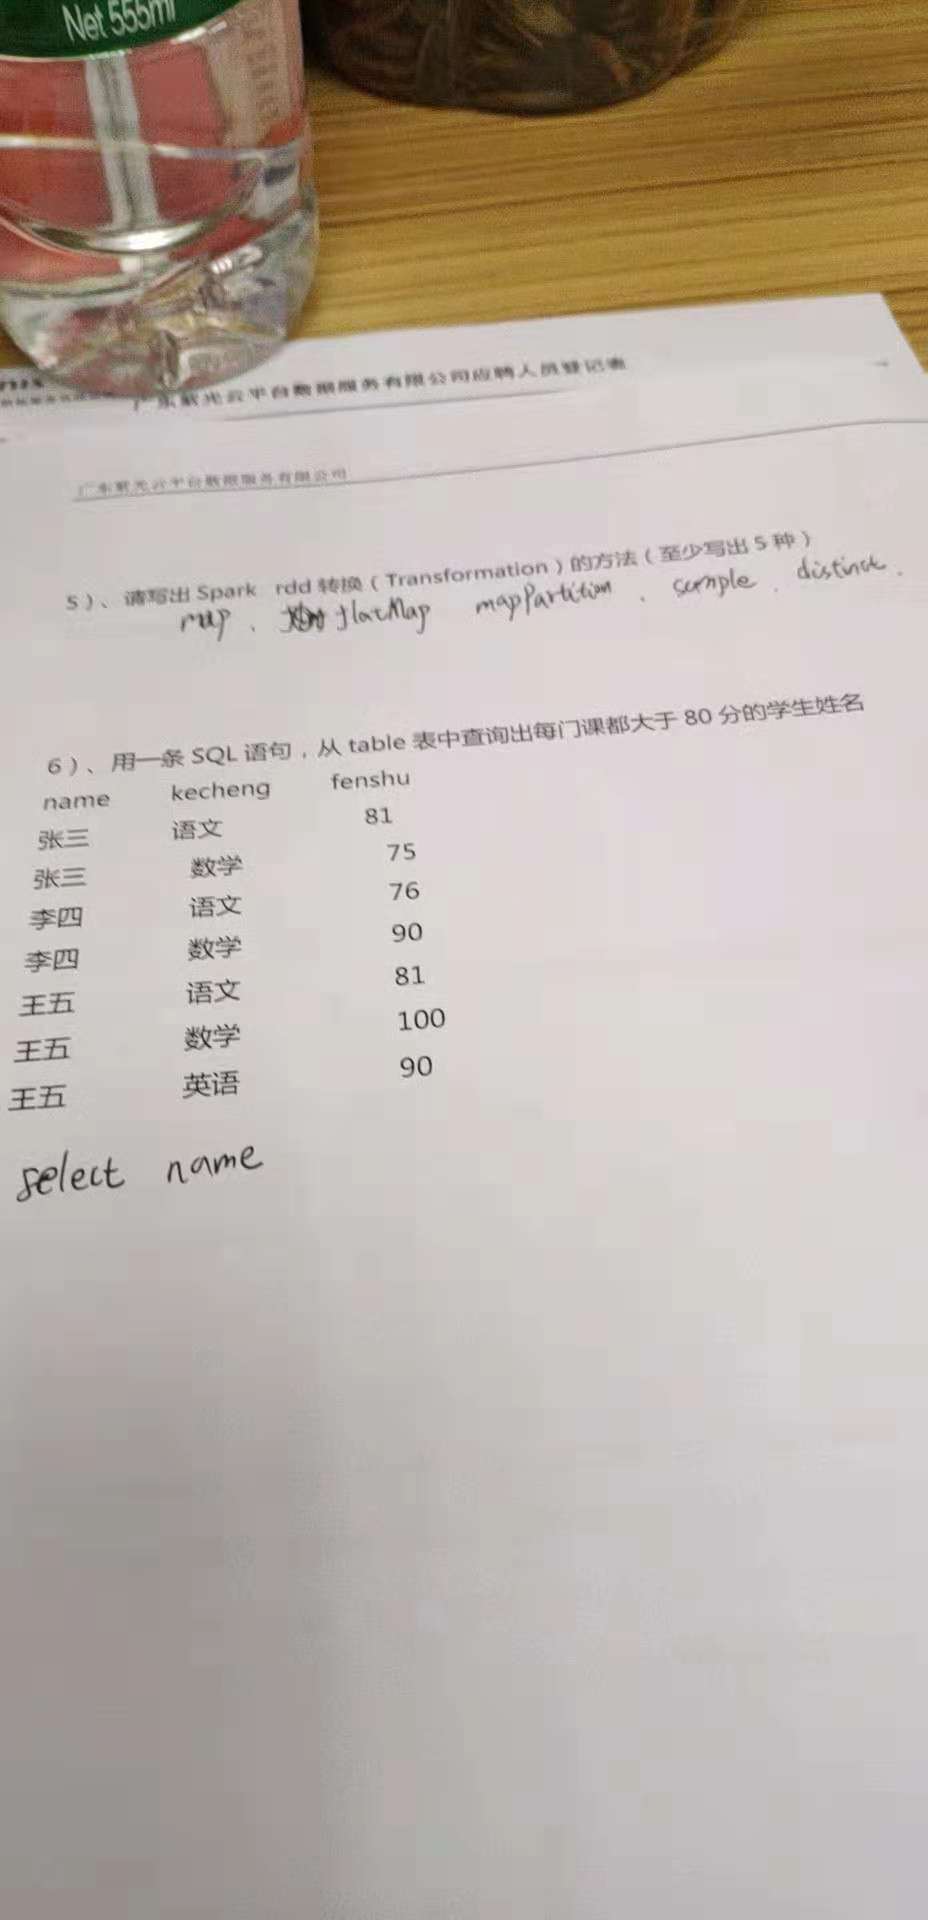 Net 555ml
广东紫光云平台数据服务有限公司应聘人员登记表
广东紫光云平台数据服务有限公司
5）、请写出 Spark rdd 转换（Transformation）的方法（至少写出 5 种）
map、flatMap mapPartition、sample、distinct.
6）、用一条 SQL 语句，从 table 表中查询出每门课都大于 80 分的学生姓名
name kecheng fenshu
张三 语文 81
张三 数学 75
李四 语文 76
李四 数学 90
王五 语文 81
王五 数学 100
王五 英语 90
select name